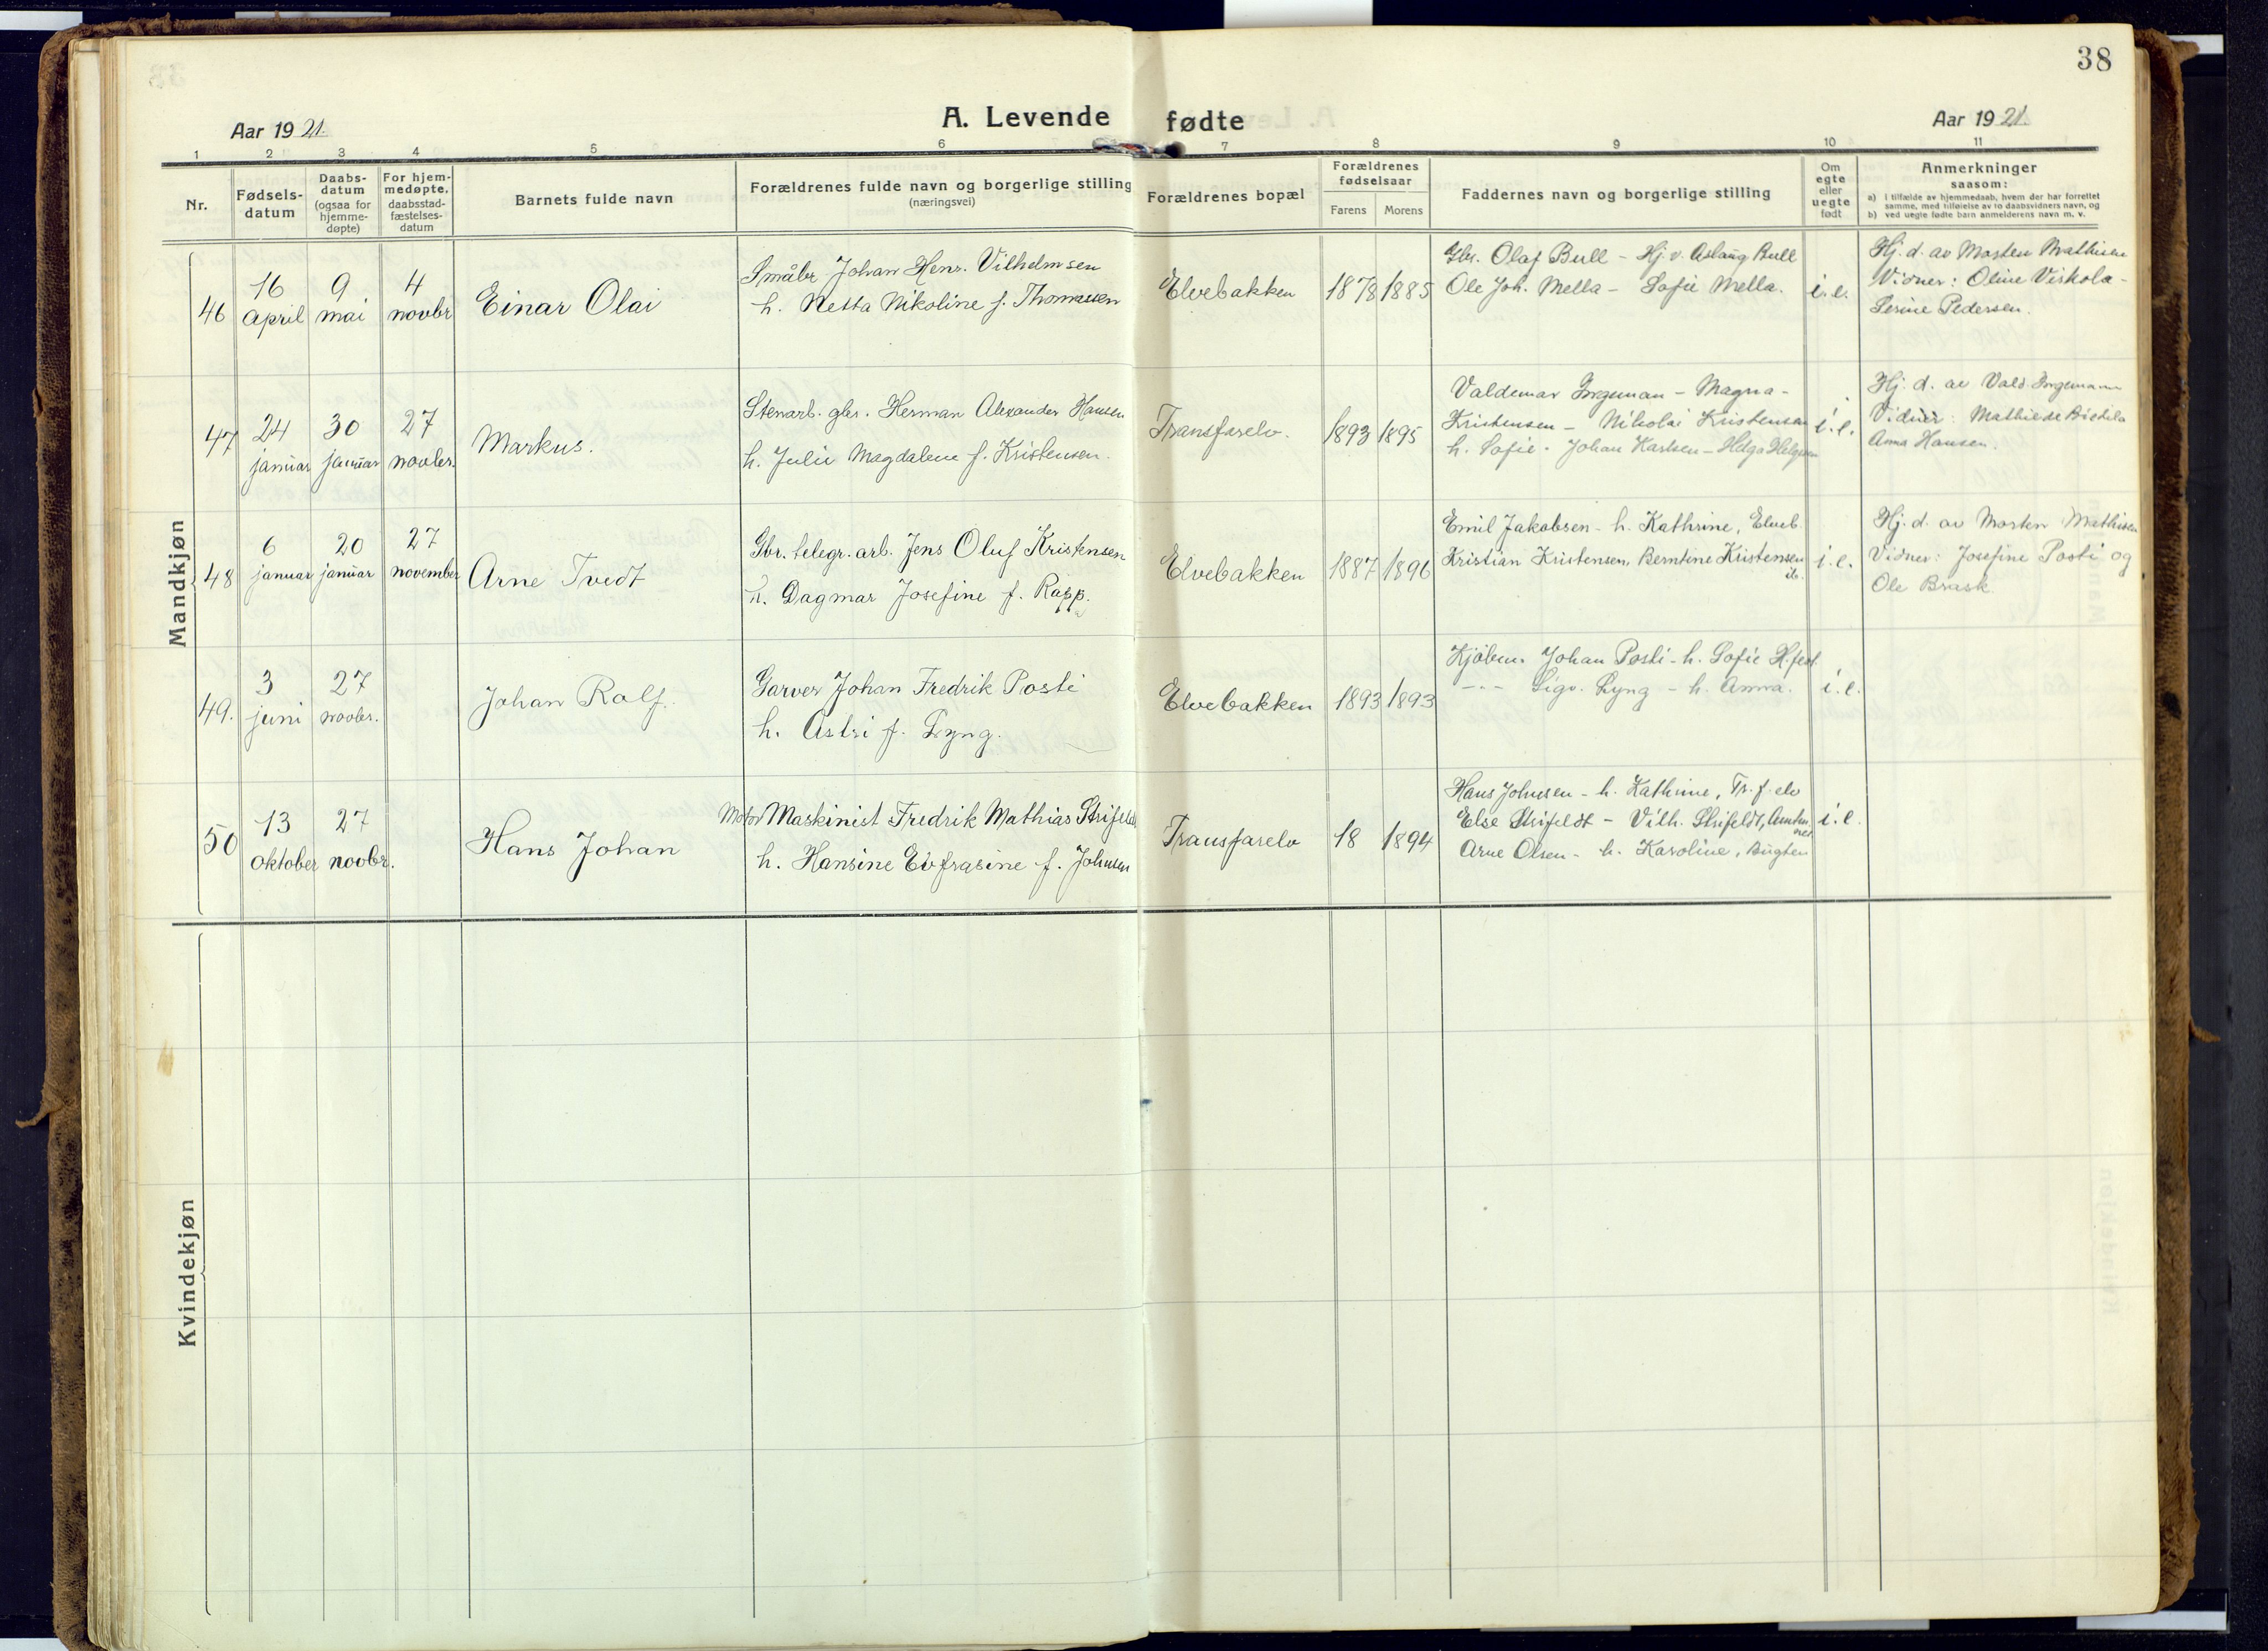 38
A. Levende fødte
Aar 1921.
Aar 1921.
1 2 3 4 5 6 7 8 9 10 11
Nr.
Fødsels-
datum
Daabs-
datum
(ogsaa for
hjemme-
døpte)
For hjem-
medøpte,
daabsstad-
fæstelses-
datum
Barnets fulde navn
Forældrenes fulde navn og borgerlige stilling
(næringsvei)
Forældrenes bopæl
Forældrenes
fødselsaar
Farens Morens
Faddernes navn og borgerlige stilling
Om
egte
eller
uegte
født
Anmerkninger
saasom:
a) i tilfælde av hjemmedaab, hvem der har forrettet
samme, med tilføielse av to daabsvidners navn, og
b) ved uegte fødte barn anmelderens navn m. v.
Mandkjøn
46
16
april
9
mai
4
novbr
Einar Olai
Småbr. Johan Henr. Vilhelmsen
h. Netta Nikoline f. Thomassen
Elvebakken
1878 1885
Gbr. Olaf Bull - Hj.v. Aslaug Bull
Ole Joh. Mella - Sofie Mella.
i. e.
Hj. d. av Morten Mathisen
Vidner: Oline Viskola -
Serine Pedersen.
47
24
januar
30
januar
27
novbr.
Markus.
Stenarb. gbr. Herman Alexander Hansen
h. Julie Magdalene f. Kristensen.
Transfarelv.
1893 1895
Valdemar Ingeman - Magna -
Kristensen - Nikolai Kristensen
h. Sofie. Johan Karlsen - Helga Helgesen
i. e.
Hj. d. av Vald. Ingemann
Vidner: Mathilde
Anna Hansen.
48
6
januar
20
januar
27
november
Arne Tvedt
Gbr. telegr. arb. Jens Oluf Kristensen
h. Dagmar Josefine f. Rapp.
Elvebakken
1887 1896
Emil Jakobsen - h. Kathrine, Elveb.
Kristian Kristensen, Berntine Kristensen
ib.
i. e.
Hj. d. av Morten Mathisen
Vidner: Josefine Posti og
Ole Brask.
49.
3
juni
27
novbr.
Johan Rolf.
Garver Johan Fredrik Posti
h. Astri f. Lyng.
Elvebakken
1893 1893
Kjøbm. Johan Posti - h. Sofie H.fest.
-"- Sigv. Lyng - h. Anna.
i. e.
50
13
oktober
27
novbr.
Hans Johan
Motor Maskinist Fredrik Mathias Strifeldt
h. Hansine Eufrasine f. Johnsen
Transfarelv
18 1894
Hans Johnsen - h. Kathrine, Tr. f. elv
Else Strifeldt - Vilh. Strifeldt,
Arne Olsen - h. Karoline, Bugten
i. e.
Kvindekjøn